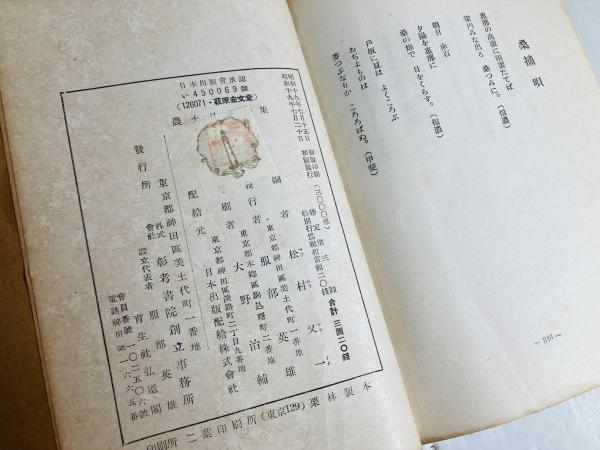 桑摘唄
惠那の高嶺に雨雲たてば
室內みな出る 桑つみに。(信濃)
朝日 赤石
夕陽を惠那に
桑の畑で 日をくらす。(信濃)
戶坂に豆は よくころぶ
おぢよものは ころろばぬ。(甲斐)
日本出版會承認
い450069號
(126071・萩原金文堂)
昭和十九年七月十五日 初版印刷
昭和十九年七月二十日 初版發行 (三〇〇〇部)
定價 三圓
特別行爲稅相當額二〇錢
合計 三圓二〇錢
編者 松村又一
東京都神田區美土代町一番地
發行者 服部英雄
東京都本鄕區駒込曙町二番地
印刷者 大野治輔
東京都神田區淡路町二丁目九番地
配給元 日本出版配給株式會社
東京都神田區美土代町一番地
發行所 株式會社 彰考書院創立事務所
設立代表者 服部英雄
育生社弘道閣
會員番號一〇二五〇六號
印刷所 二葉印刷所(東京129)栗林製本